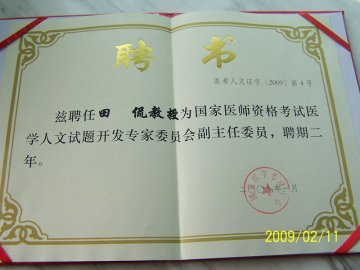 聘 书
医考人文证字〔2009〕第4号
兹聘任田 侃教授为国家医师资格考试医
学人文试题开发专家委员会副主任委员，聘期二
年。
2009/02/11